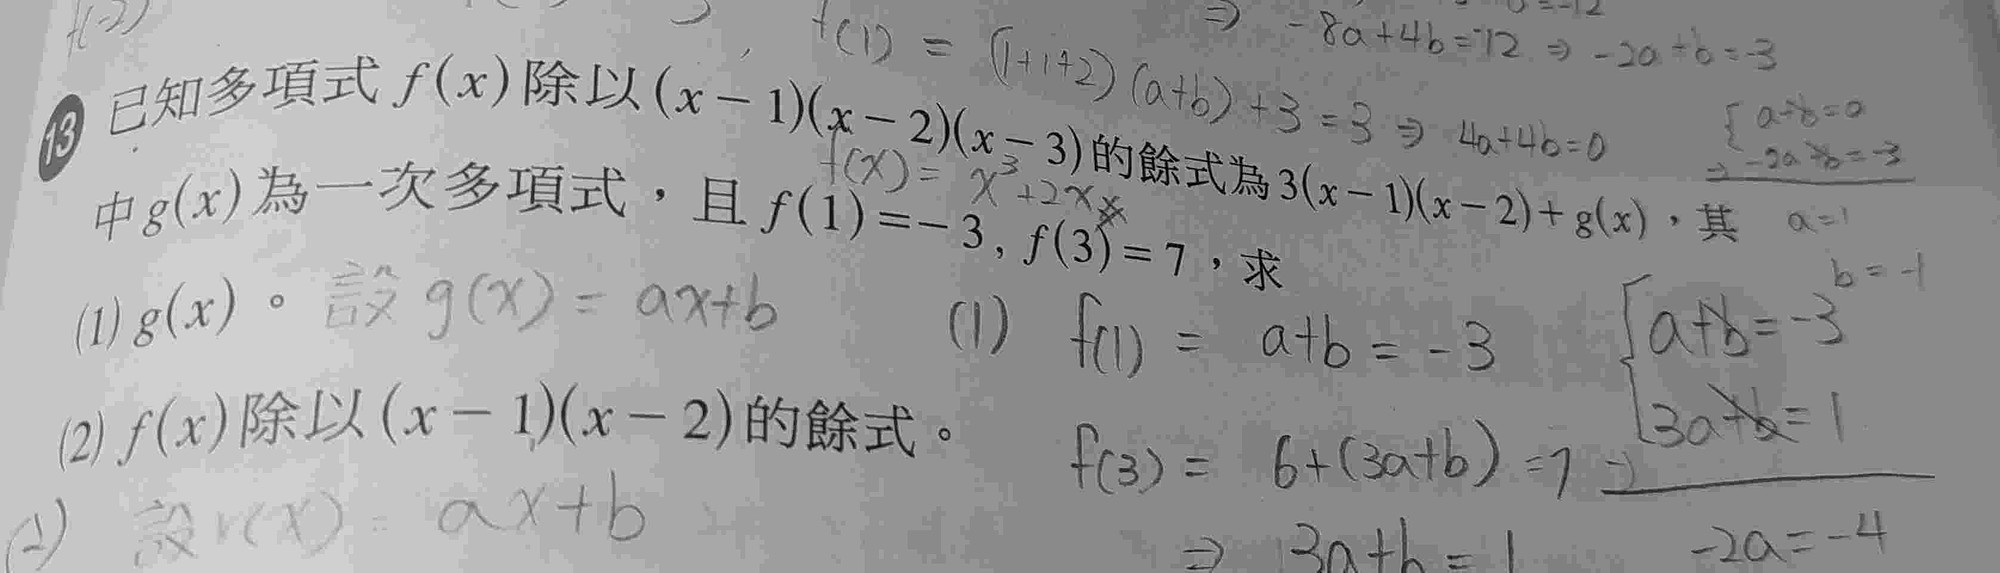 f(1) = (1+1+2)(a+b)+3=3 ⇒ 4a+4b=0
⇒ -8a+4b=-12 ⇒ -2a+b=-3
{ a+b=0
-2a+b=-3
a=1
b=-1
13 已知多項式 f(x) 除以 (x-1)(x-2)(x-3) 的餘式為 3(x-1)(x-2)+g(x),其
f(x) = x³+2x
中 g(x) 為一次多項式,且 f(1)=-3, f(3)=7,求
(1) g(x)。 設 g(x) = ax+b
(2) f(x) 除以 (x-1)(x-2) 的餘式。
(2) 設 r(x) = ax+b
(1) f(1) = a+b = -3
f(3) = 6+(3a+b) =7
⇒ 3a+b=1
{ a+b=-3
3a+b=1
-2a=-4